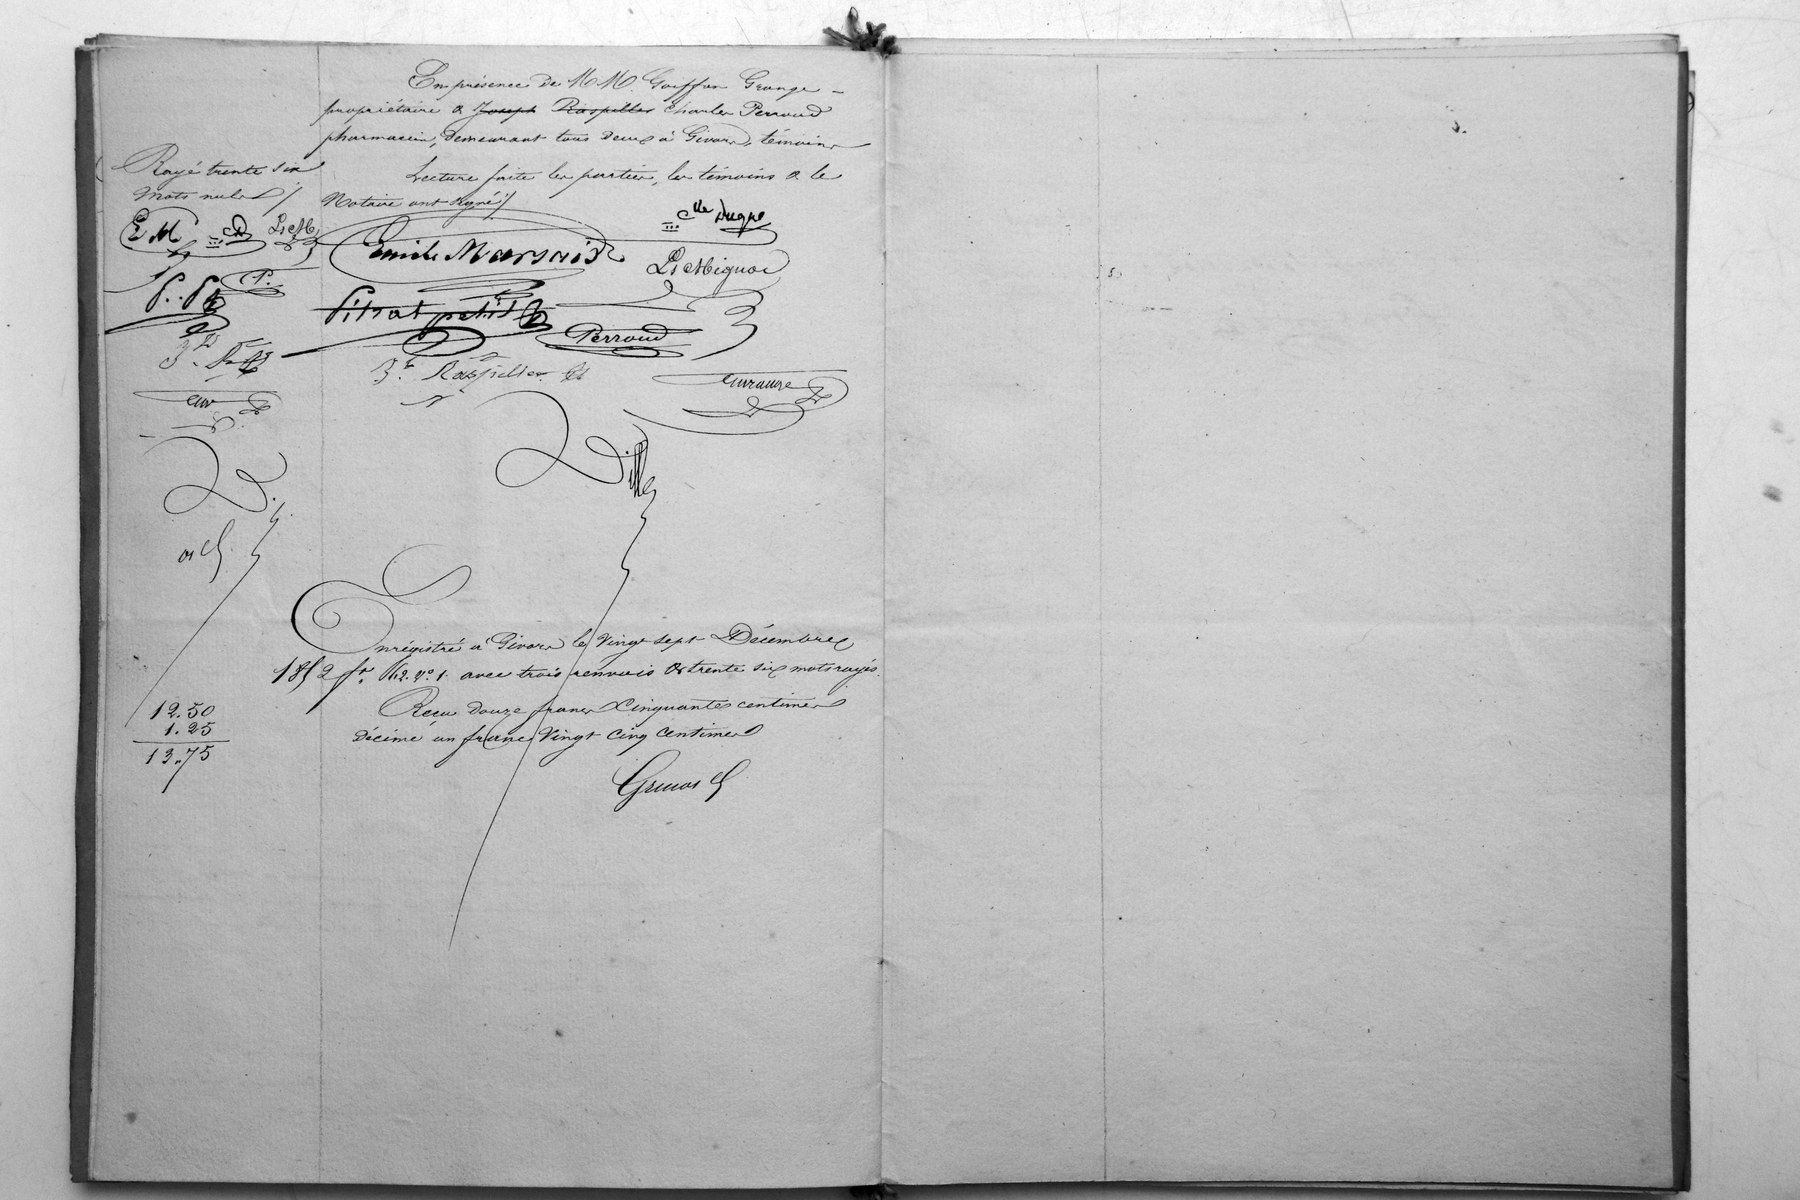 En présence de M M. Goiffon Grange
propriétaire & Joseph Raspiller Charles Perroud
pharmacien, demeurant tous deux à Givors, témoins
Lecture faite les parties, les témoins & le
Notaire ont signé /
Rayé trente six
mots nuls /
E M
D
P. P
P.
Clle Duque
Emile Marsais
Pitrat petit
Perroud
Enregistré à Givors le Vingt sept Décembre
1852 fo. 62. vo 1. avec trois renvois & trente six mots rayés.
Reçu douze francs Cinquante centimes
décime un franc Vingt cinq centimes
12.50
1.25
13.75